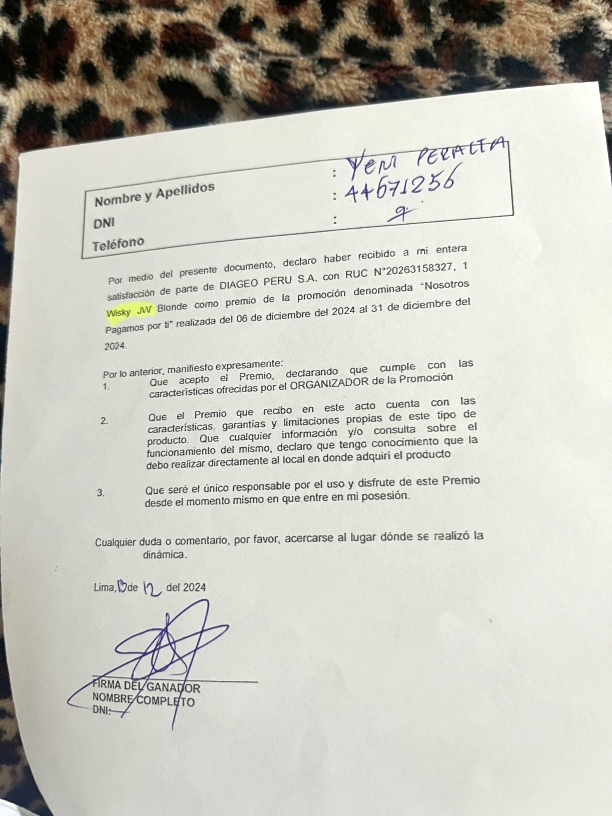 Nombre y Apellidos : YENI PERALTA
DNI : 44671256
Teléfono :
Por medio del presente documento, declaro haber recibido a mi entera
satisfacción de parte de DIAGEO PERU S.A. con RUC N°20263158327, 1
Wisky JW Blonde como premio de la promoción denominada "Nosotros
Pagamos por ti" realizada del 06 de diciembre del 2024 al 31 de diciembre del
2024.
Por lo anterior, manifiesto expresamente:
1. Que acepto el Premio, declarando que cumple con las
características ofrecidas por el ORGANIZADOR de la Promoción
2. Que el Premio que recibo en este acto cuenta con las
características, garantías y limitaciones propias de este tipo de
producto. Que cualquier información y/o consulta sobre el
funcionamiento del mismo, declaro que tengo conocimiento que la
debo realizar directamente al local en donde adquirí el producto
3. Que seré el único responsable por el uso y disfrute de este Premio
desde el momento mismo en que entre en mi posesión.
Cualquier duda o comentario, por favor, acercarse al lugar dónde se realizó la
dinámica.
Lima, de 12 del 2024
FIRMA DEL GANADOR
NOMBRE COMPLETO
DNI: